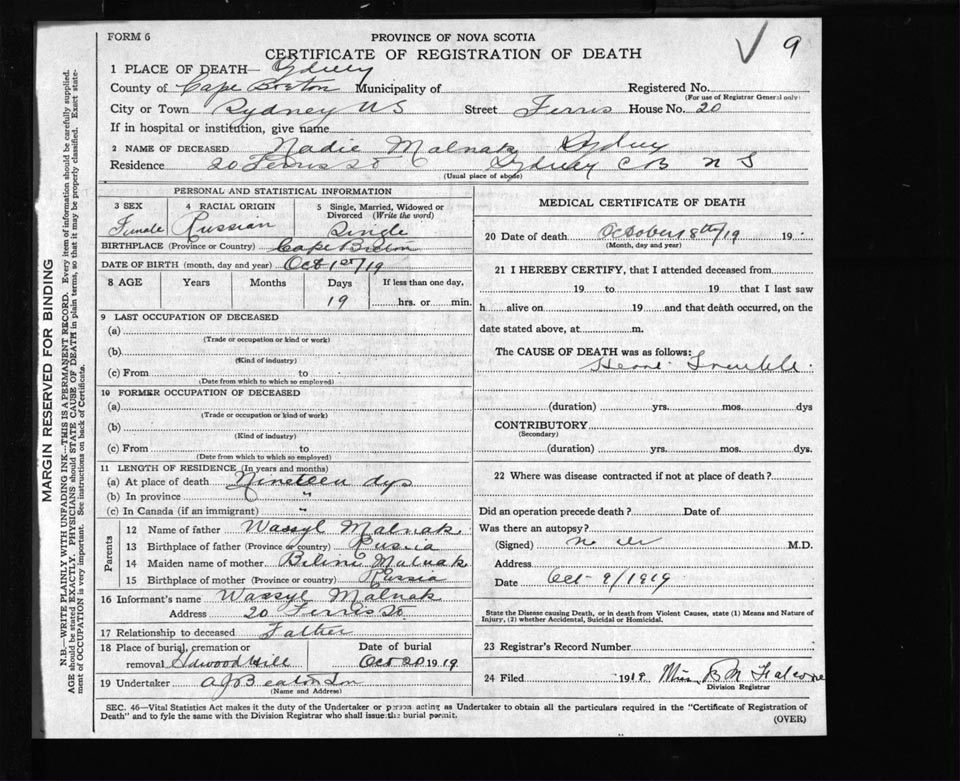 FORM 6
PROVINCE OF NOVA SCOTIA
CERTIFICATE OF REGISTRATION OF DEATH
9
1 PLACE OF DEATH— Sydney
County of Cape Breton Municipality of Registered No.
(For use of Registrar General only)
City or Town Sydney NS Street Ferris House No. 20
If in hospital or institution, give name
2 NAME OF DECEASED Nadie Malnak Sydney
Residence 20 Ferris St Sydney C B N S
(Usual place of abode)
PERSONAL AND STATISTICAL INFORMATION
3 SEX 4 RACIAL ORIGIN 5 Single, Married, Widowed or Divorced (Write the word)
Female Russian Single
BIRTHPLACE (Province or Country) Cape Breton
DATE OF BIRTH (month, day and year) Oct 1st/19
8 AGE Years Months Days If less than one day,
19 hrs. or min.
9 LAST OCCUPATION OF DECEASED
(a)
(Trade or occupation or kind or work)
(b)
(Kind of industry)
(c) From to
(Date from which to which so employed)
10 FORMER OCCUPATION OF DECEASED
(a)
(Trade or occupation or kind of work)
(b)
(Kind of industry)
(c) From to
(Date from which to which so employed)
11 LENGTH OF RESIDENCE (In years and months)
(a) At place of death Nineteen dys
(b) In province "
(c) In Canada (if an immigrant) "
Parents
12 Name of father Wassyl Malnak
13 Birthplace of father (Province or country) Russia
14 Maiden name of mother Malnak
15 Birthplace of mother (Province or country) Russia
16 Informant's name Wassyl Malnak
Address 20 Ferris St
17 Relationship to deceased Father
18 Place of burial, cremation or Date of burial
removal Hill Oct 20 1919
19 Undertaker A J Beaton Son
(Name and Address)
MEDICAL CERTIFICATE OF DEATH
20 Date of death October 8th/19 19
(Month, day and year)
21 I HEREBY CERTIFY, that I attended deceased from
19 to 19 that I last saw
h alive on 19 and that death occurred, on the
date stated above, at m.
The CAUSE OF DEATH was as follows:
Heart Trouble
(duration) yrs. mos. dys
CONTRIBUTORY
(Secondary)
(duration) yrs. mos. dys.
22 Where was disease contracted if not at place of death?
Did an operation precede death? Date of
Was there an autopsy?
(Signed) No M.D.
Address
Date Oct - 9/1919
State the Disease causing Death, or in death from Violent Causes, state (1) Means and Nature of
Injury, (2) whether Accidental, Suicidal or Homicidal.
23 Registrar's Record Number
24 Filed 1919 Miss B M
Division Registrar
SEC. 46—Vital Statistics Act makes it the duty of the Undertaker or person acting as Undertaker to obtain all the particulars required in the "Certificate of Registration of
Death" and to fyle the same with the Division Registrar who shall issue the burial permit.
(OVER)
MARGIN RESERVED FOR BINDING
N.B.—WRITE PLAINLY WITH UNFADING INK—THIS IS A PERMANENT RECORD. Every item of information should be carefully supplied.
AGE should be stated EXACTLY. PHYSICIANS should STATE CAUSE OF DEATH in plain terms, so that it may be properly classified. Exact state-
ment of OCCUPATION is very important. See instructions on back of Certificate.